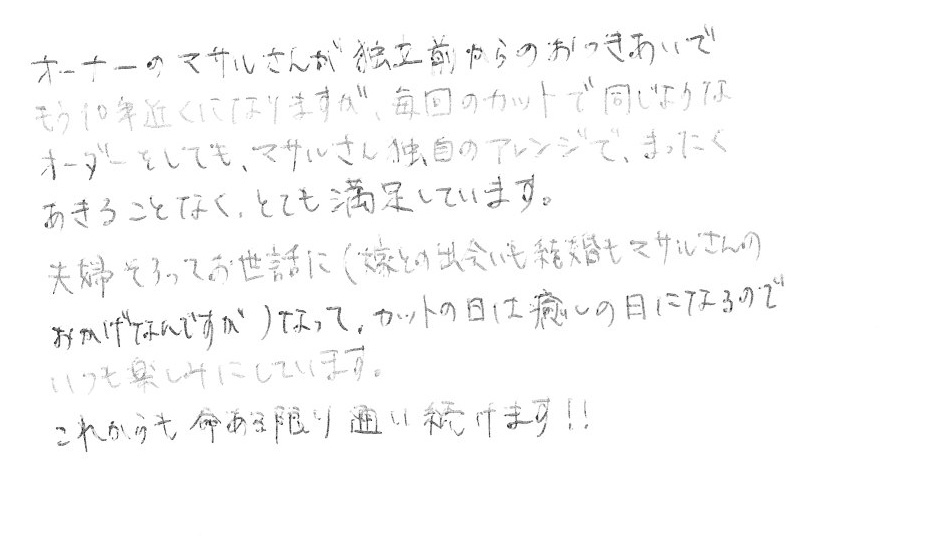 オーナーのマサルさんが独立前からのおつきあいで
もう10年近くになりますが、毎回のカットで同じような
オーダーをしても、マサルさん独自のアレンジで、まったく
あきることなく、とても満足しています。
夫婦そろってお世話に(嫁との出会いも結婚もマサルさんの
おかげなんですが)なって、カットの日は癒しの日になるので
いつも楽しみにしています。
これからも命ある限り通い続けます!!